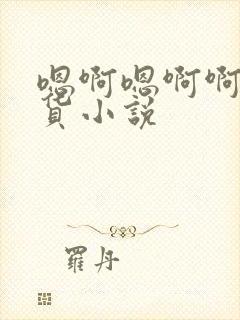 嗯啊嗯啊啊
小説
羅丹